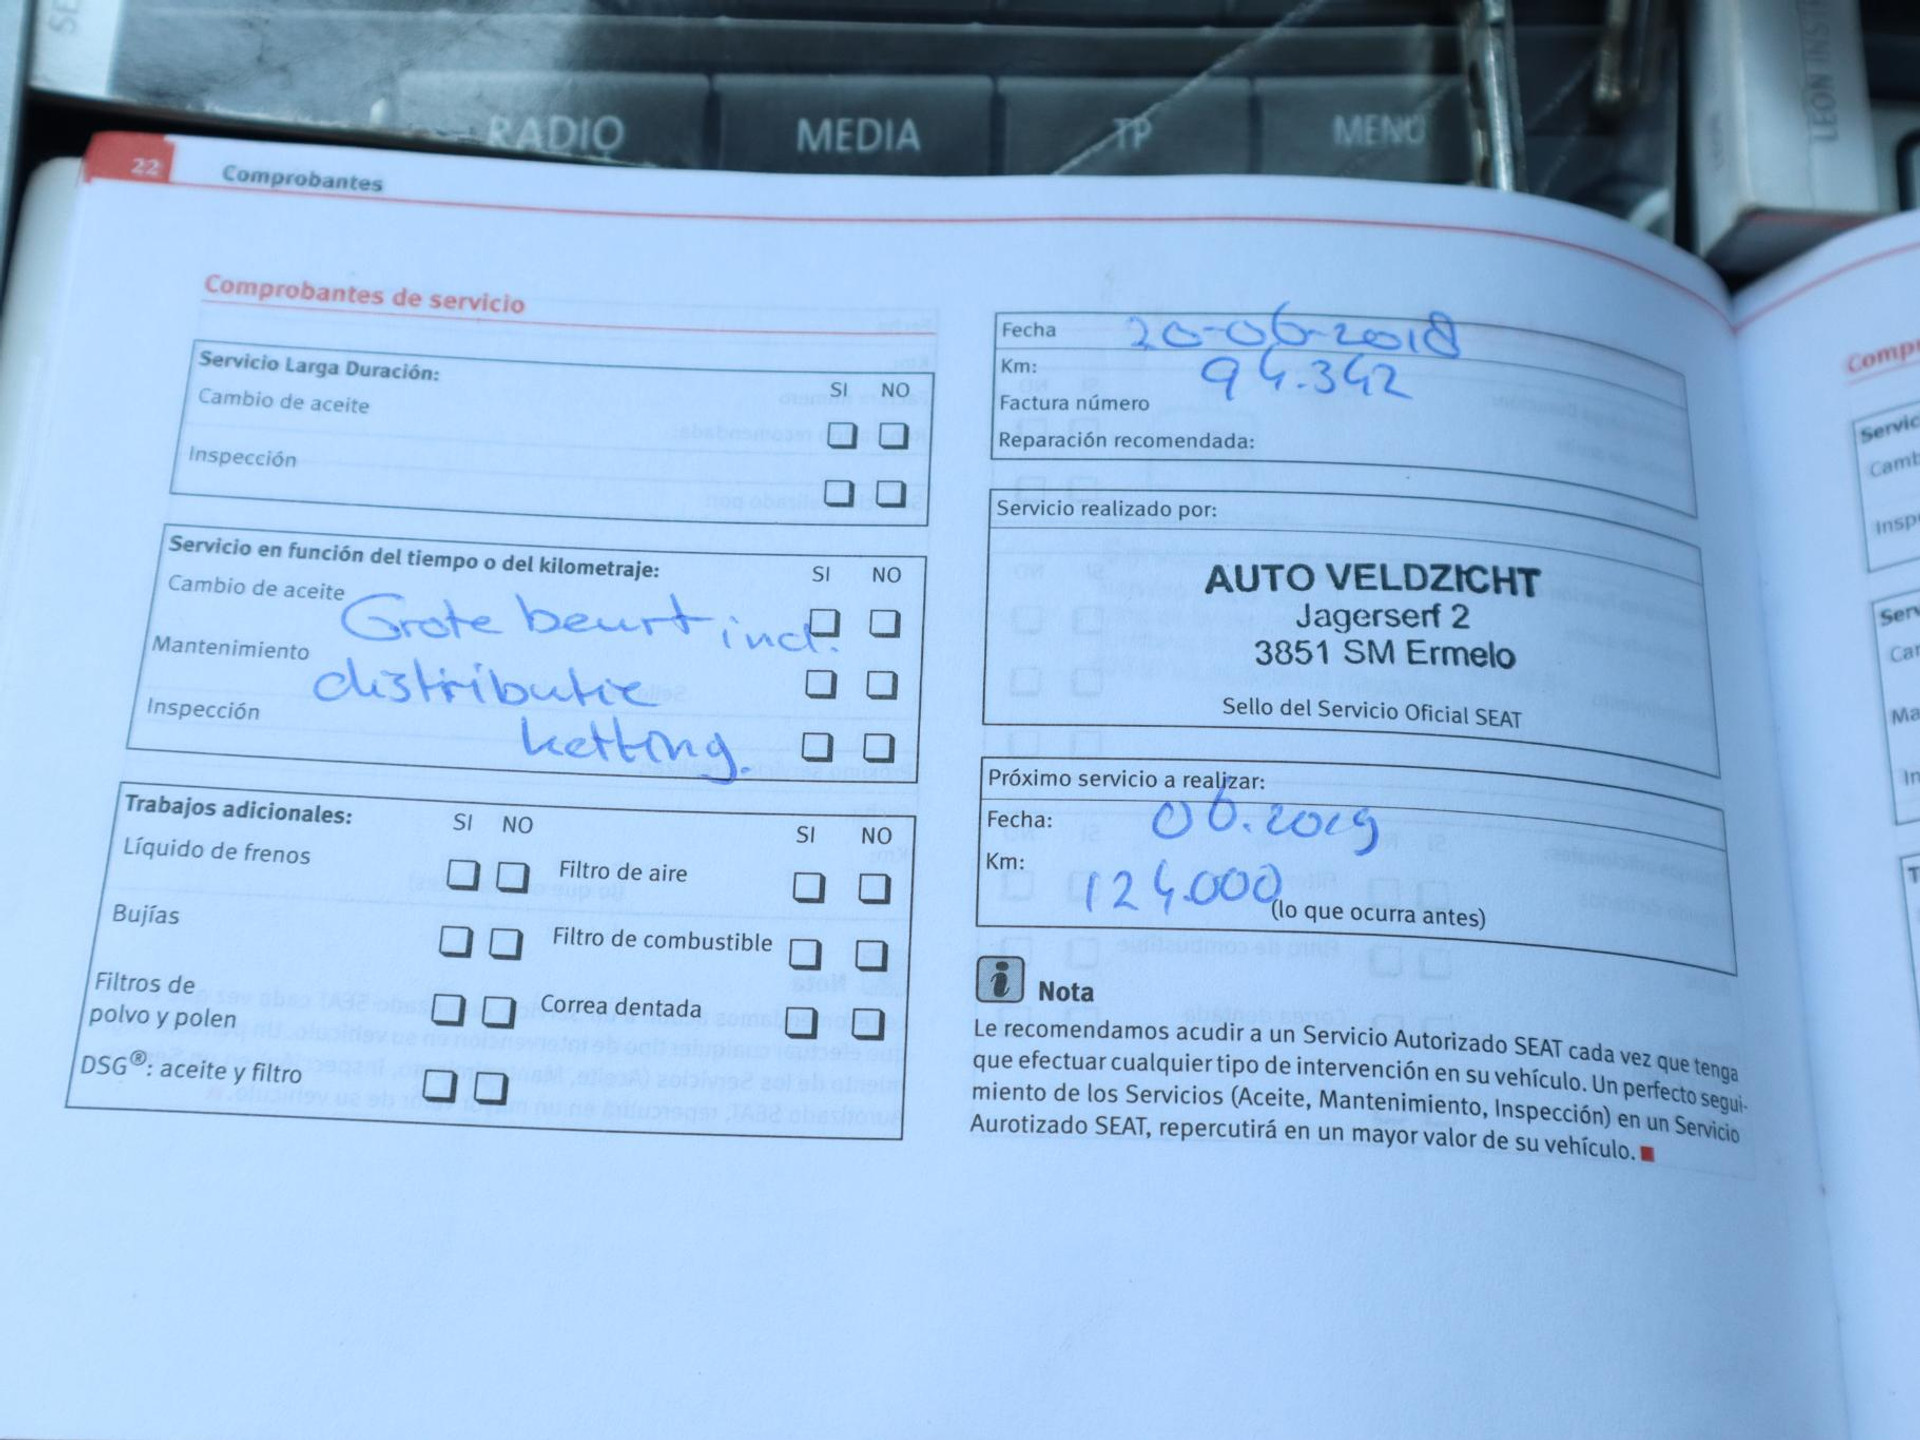 RADIO MEDIA TP MENU
LEON INST
22 Comprobantes
Comprobantes de servicio
Servicio Larga Duración:
SI NO
Cambio de aceite
Inspección
Servicio en función del tiempo o del kilometraje:
SI NO
Cambio de aceite
Grote beurt incl.
Mantenimiento
distributie
Inspección
ketting.
Trabajos adicionales:
SI NO SI NO
Líquido de frenos Filtro de aire
Bujías Filtro de combustible
Filtros de
polvo y polen Correa dentada
DSG®: aceite y filtro
Fecha 20-06-2018
Km: 94.342
Factura número
Reparación recomendada:
Servicio realizado por:
AUTO VELDZICHT
Jagerserf 2
3851 SM Ermelo
Sello del Servicio Oficial SEAT
Próximo servicio a realizar:
Fecha: 06.2019
Km: 124.000
(lo que ocurra antes)
i Nota
Le recomendamos acudir a un Servicio Autorizado SEAT cada vez que tenga
que efectuar cualquier tipo de intervención en su vehículo. Un perfecto segui-
miento de los Servicios (Aceite, Mantenimiento, Inspección) en un Servicio
Aurotizado SEAT, repercutirá en un mayor valor de su vehículo.
Compr
Servic
Camb
Insp
Ser
Ca
Ma
In
T